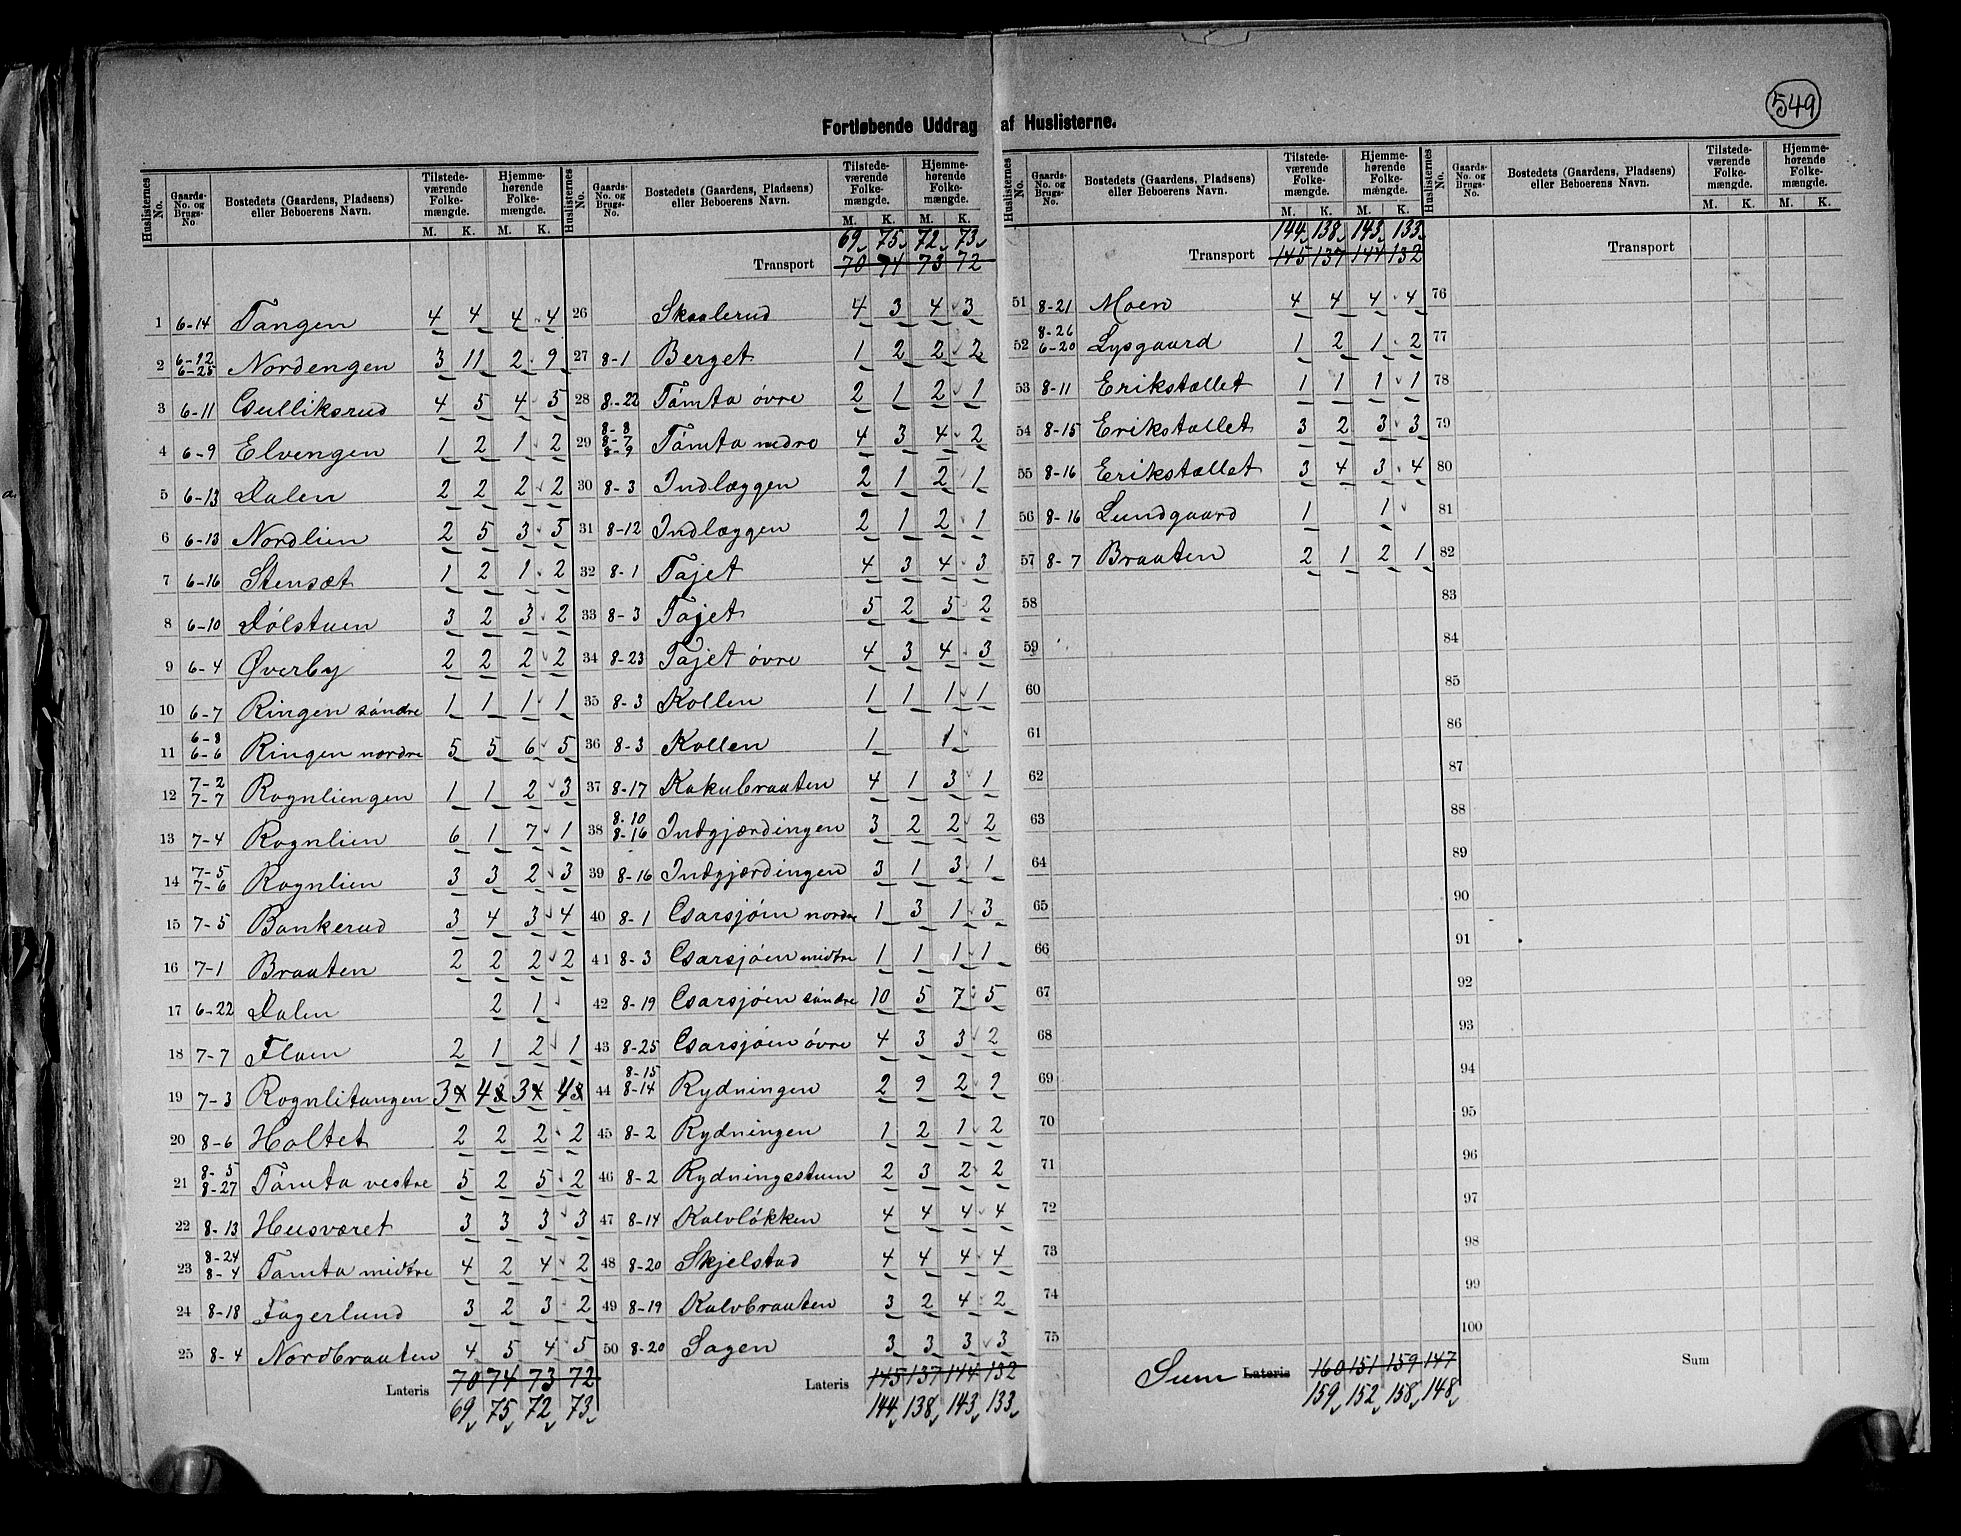 549
Fortløbende Uddrag af Huslisterne.
Huslisternes No. | Gaards-No. og Brugs-No. | Bostedets (Gaardens, Pladsens) eller Beboerens Navn. | Tilstedeværende Folkemængde. M. K. | Hjemmehørende Folkemængde. M. K.
1 6-14 Tangen 4 4 4 4
2 6-12 6-25 Nordengen 3 11 2 9
3 6-11 Gulliksrud 4 5 4 5
4 6-9 Elvengen 1 2 1 2
5 6-13 Dalen 2 2 2 2
6 6-13 Nordlien 2 5 3 5
7 6-16 Stensæt 1 2 1 2
8 6-10 Dølstuen 3 2 3 2
9 6-4 Øverby 2 2 2 2
10 6-7 Ringen søndre 1 1 1 1
11 6-8 6-6 Ringen nordre 5 5 6 5
12 7-2 7-7 Rognliengen 1 1 2 3
13 7-4 Rognlien 6 1 7 1
14 7-5 7-6 Rognlien 3 3 2 3
15 7-5 Bankerud 3 4 3 4
16 7-1 Braaten 2 2 2 2
17 6-22 Dalen 2 1
18 7-7 Floen 2 1 2 1
19 7-3 Rognlitangen 3 4 3 4
20 8-6 Holtet 2 2 2 2
21 8-5 8-27 Tømta vestre 5 2 5 2
22 8-13 Husværet 3 3 3 3
23 8-24 8-4 Tømta midtre 4 2 4 2
24 8-18 Fagerlund 3 2 3 2
25 8-4 Nordbraaten 4 5 4 5
Lateris 70 74 73 72
69 75 72 73
69 75 72 73
Transport 70 74 73 72
26 Skaalerud 4 3 4 3
27 8-1 Berget 1 2 2 2
28 8-22 Tømta øvre 2 1 2 1
29 8-8 8-7 8-9 Tømta nedre 4 3 4 2
30 8-3 Indlæggen 2 1 2 1
31 8-12 Indlæggen 2 1 2 1
32 8-1 Tajet 4 3 4 3
33 8-3 Tajet 5 2 5 2
34 8-23 Tajet øvre 4 3 4 3
35 8-3 Kollen 1 1 1 1
36 8-3 Kollen 1 1
37 8-17 Kakubraaten 4 1 3 1
38 8-10 8-16 Indgjærdingen 3 2 2 2
39 8-16 Indgjærdingen 3 1 3 1
40 8-1 Garsjøen nordre 1 3 1 3
41 8-3 Garsjøen midtre 1 1 1 1
42 8-19 Garsjøen søndre 10 5 7 5
43 8-25 Garsjøen øvre 4 3 3 2
44 8-15 8-14 Rydningen 2 9 2 9
45 8-2 Rydningen 1 2 1 2
46 8-2 Rydningsstuen 2 3 2 2
47 8-14 Kalvløkken 4 4 4 4
48 8-20 Skjelstad 4 4 4 4
49 8-19 Kalvbraaten 3 2 4 2
50 8-20 Sagen 3 3 3 3
Lateris 145 137 144 132
144 138 143 133
144 138 143 133
Transport 145 137 144 132
51 8-21 Moen 4 4 4 4
52 8-26 6-20 Lysgaard 1 2 1 2
53 8-11 Erikstallet 1 1 1 1
54 8-15 Erikstallet 3 2 3 3
55 8-16 Erikstallet 3 4 3 4
56 8-16 Lundgaard 1 1
57 8-7 Braaten 2 1 2 1
58
59
60
61
62
63
64
65
66
67
68
69
70
71
72
73
74
75
Sum Lateris 160 151 159 147
159 152 158 148
Transport
76
77
78
79
80
81
82
83
84
85
86
87
88
89
90
91
92
93
94
95
96
97
98
99
100
Sum